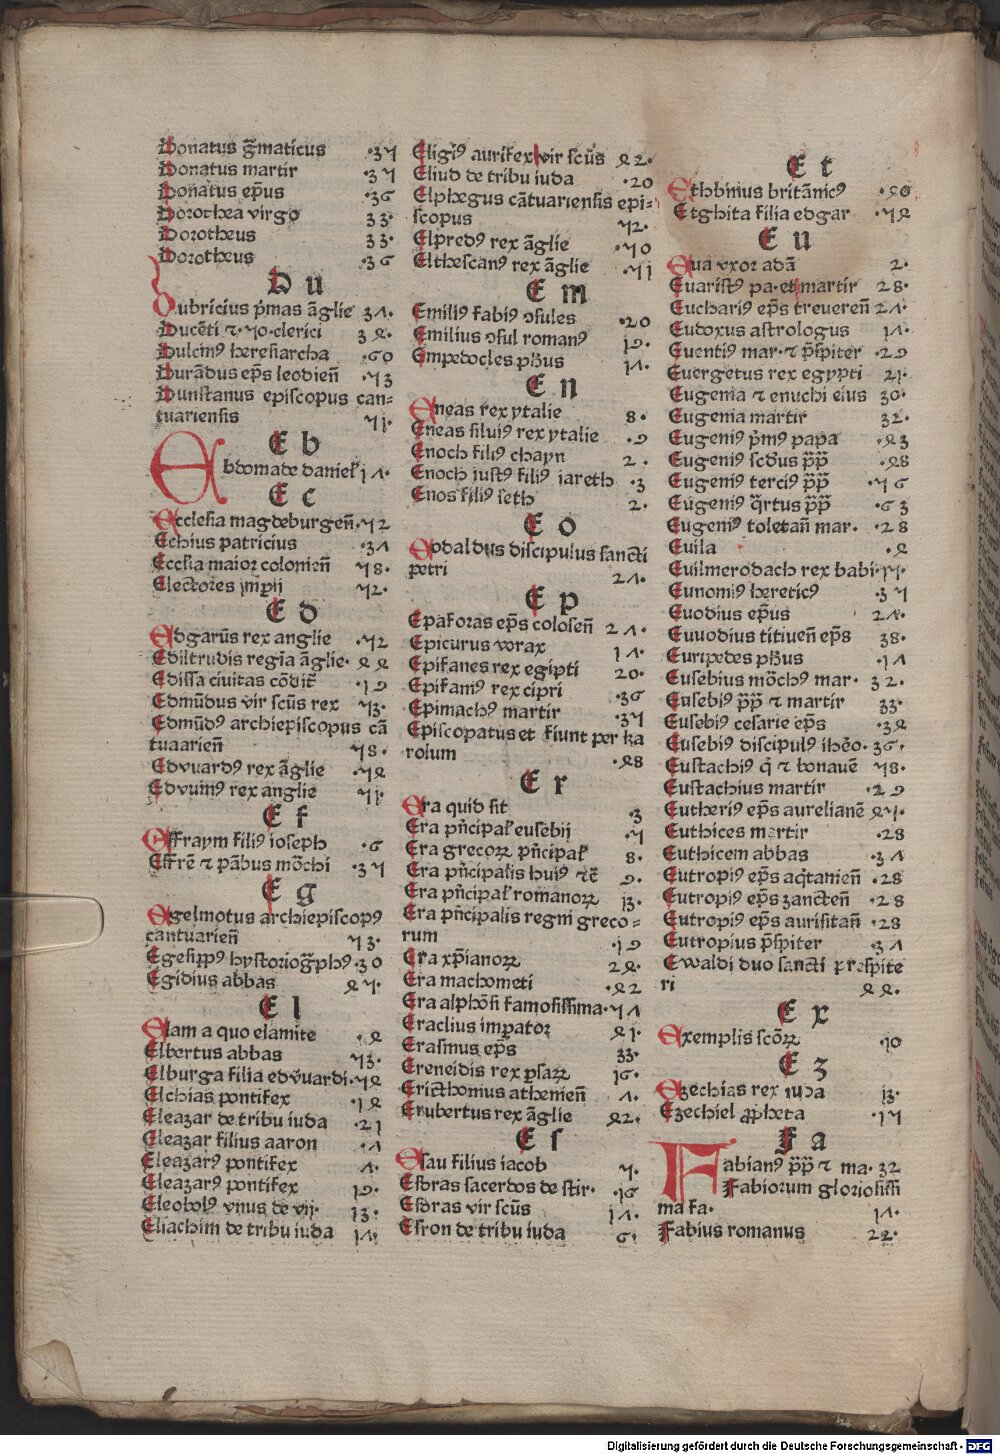 Donatus g̃maticus ·37
Donatus martir ·37
Donatus ep̃us ·36
Dorothea virgo 33·
Dorotheus 33·
Dorotheus ·36
D u
Dubricius p̃mas ãglie 31·
Ducẽti ⁊ ·70·clerici 38·
Dulcinꝰ heresiarcha ·60
Durãdus ep̃s leodien̄ ·73
Dunstanus episcopus can-
tuariensis 71·
E b
Ebdomade danieƚ 11·
E c
Ecclesia magdeburgen̄·72
Echius patricius ·31
Eccƚia maior colonien̄ 78·
Electores imp̃ij 72·
E d
Edgarũs rex anglie ·72
Ediltrudis regĩa ãglie· 44
Edissa ciuitas cõdit̃ ·19
Edmũdus vir scũs rex 73·
Edmũdꝰ archiepiscopus cã
tuaarien̄ 78·
Edvuardꝰ rex ãglie ·74
Edvuinꝰ rex anglie 71·
E f
Effraym filiꝰ ioseph ·6
Effrẽ ⁊ pãbus mõchi ·37
E g
Egelmotus archiepiscopꝰ
cantuarien̄ 73·
Egesippꝰ hystoriog̃phꝰ·30
Egidius abbas 47·
E l
Elam a quo elamite ·4
Elbertus abbas 73·
Elburga filia edv̄uardi·74
Elchias pontifex ·14
Eleazar de tribu iuda ·21
Eleazar filius aaron ·1
Eleazarꝰ pontifex 1·
Eleazarꝰ pontifex 19·
Eleobolꝰ vnus de vij· 13·
Eliachim de tribu iuda 11·
Eligiꝰ aurifex vir scũs 42·
Eliud de tribu iuda ·20
Elphegus cãtuariensis epi-
scopus 72·
Elpredꝰ rex ãglie ·70
Elthescanꝰ rex ãglie ·71
E m
Emiliꝰ fabiꝰ ɔsules ·20
Emilius ɔsul romanꝰ 19·
Empedocles ph̃us 11·
E n
Eneas rex ytalie 8·
Eneas siluiꝰ rex ytalie ·9
Enoch filiꝰ chayn 2·
Enoch iustꝰ filiꝰ iareth ·3
Enos filiꝰ seth 2·
E o
Eodaldus discipulus sancti
petri 21·
E p
Epaforas ep̃s colosen̄ 21·
Epicurus vorax 11·
Epifanes rex egipti 20·
Epifaniꝰ rex cipri ·36
Epimachꝰ martir ·37
Episcopatus et fiunt per ka
rolum ·48
E r
Era quid sit ·3
Era pñcipaƚ eusebij ·7
Era grecoꝝ pñcipaƚ 8·
Era pñcipalis huiꝰ ⁊c̃ 9·
Era pñcipaƚ romanoꝝ 13·
Era pñcipalis regni greco-
rum ·19
Era xp̃ianoꝝ 24·
Era machometi ·42
Era alphõsi famosissima·71
Eraclius imp̃ator 41·
Erasmus ep̃s 33·
Ereneidis rex p̃saꝝ 16·
Ericthonius athenien̄ 1·
Erubertus rex ãglie 42·
E s
Esau filius iacob 7·
Esdras sacerdos de stir· ·16
Esdras vir scũs 11·
Esron de tribu iuda 6·
E t
Ethbinius britãnicꝰ ·40
Etghita filia edgar ·74
E u
Eua vxor adã 2·
Euaristꝰ pa·et martir 28·
Euchariꝰ ep̃s treueren̄ 21·
Eudoxus astrologus 11·
Euentiꝰ mar·⁊ p̃spiter ·29
Euergetus rex egypti 21·
Eugenia ⁊ enuchi eius 30·
Eugenia martir 32·
Eugeniꝰ p̃mꝰ papa ·43
Eugeniꝰ scd̃us p̃p̃ ·48
Eugeniꝰ terciꝰ p̃p̃ ·76
Eugeniꝰ q̃rtus p̃p̃ ·63
Eugeniꝰ toletan̄ mar· ·28
Euila ·4
Euilmerodach rex babi·17·
Eunomiꝰ hereticꝰ ·37
Euodius ep̃us 21·
Euuodius titiuen̄ ep̃s 38·
Euripedes ph̃us ·11
Eusebius mõchꝰ mar· 32·
Eusebiꝰ p̃p̃ ⁊ martir 33·
Eusebiꝰ cesarie ep̃s ·34
Eusebiꝰ discipulꝰ ihẽo· 36·
Eustachiꝰ q̃ ⁊ bonauẽ 78·
Eustachius martir ·29
Eutheriꝰ ep̃s aurelianẽ 47·
Euthices martir ·28
Euthicem abbas ·31
Eutropiꝰ ep̃s aq̃tanien̄ ·28
Eutropiꝰ ep̃s zancten̄ ·28
Eutropiꝰ ep̃s aurisitan̄ ·28
Eutropius p̃spiter ·31
Ewaldi duo sancti prespite
ri 44·
E x
Exemplis scõꝝ ·10
E z
Ezechias rex iuda 13·
Ezechiel ꝓpheta ·17
F a
Fabianꝰ p̃p̃ ⁊ ma· 32
Fabiorum gloriosissi
ma fa· 11·
Fabius romanus 22·
Digitalisierung gefördert durch die Deutsche Forschungsgemeinschaft - DFG